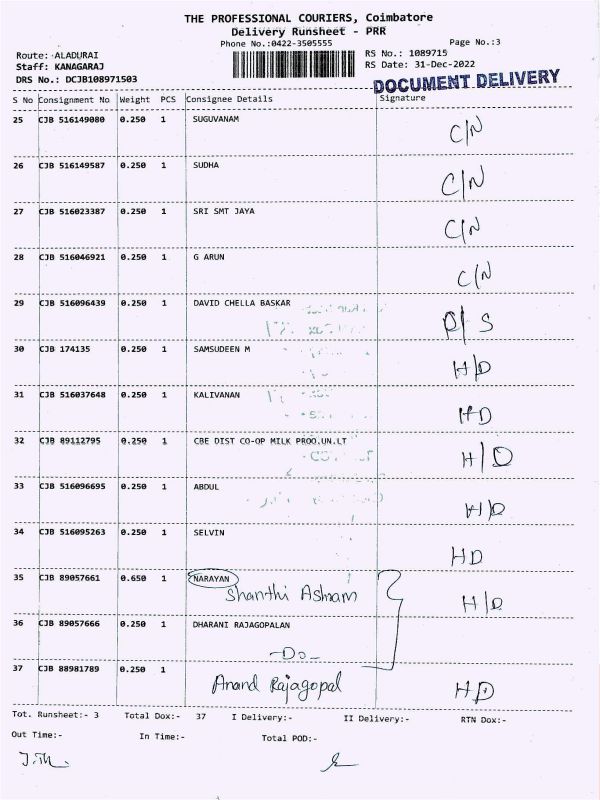 THE PROFESSIONAL COURIERS, Coimbatore
Delivery Runsheet - PRR
Phone No.:0422-3505555
Page No.:3
Route: ALADURAI
RS No.: 1089715
Staff: KANAGARAJ
RS Date: 31-Dec-2022
DRS No.: DCJB108971503
DOCUMENT DELIVERY
S No Consignment No Weight PCS Consignee Details Signature
25 CJB 516149080 0.250 1 SUGUVANAM C/N
26 CJB 516149587 0.250 1 SUDHA C/N
27 CJB 516023387 0.250 1 SRI SMT JAYA C/N
28 CJB 516046921 0.250 1 G ARUN C/N
29 CJB 516096439 0.250 1 DAVID CHELLA BASKAR P/S
30 CJB 174135 0.250 1 SAMSUDEEN M H/D
31 CJB 516037648 0.250 1 KALIVANAN HD
32 CJB 89112795 0.250 1 CBE DIST CO-OP MILK PROO.UN.LT H/D
33 CJB 516096695 0.250 1 ABDUL H/D
34 CJB 516095263 0.250 1 SELVIN HD
35 CJB 89057661 0.650 1 NARAYAN H/D
Shanthi Ashram
36 CJB 89057666 0.250 1 DHARANI RAJAGOPALAN
-Do-
37 CJB 88981789 0.250 1
Anand Rajagopal HD
Tot. Runsheet:- 3 Total Dox:- 37 I Delivery:- II Delivery:- RTN Dox:-
Out Time:- In Time:- Total POD:-